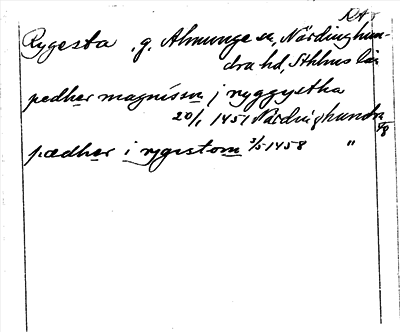 RA
Rygesta . g. Almunge sn, Närdinghun-
dra hd, Sthlms län
pedher magnissn j ryggystha
20/1 1451 Närdinghundra
pædher i rygestom 3/5 1458 "